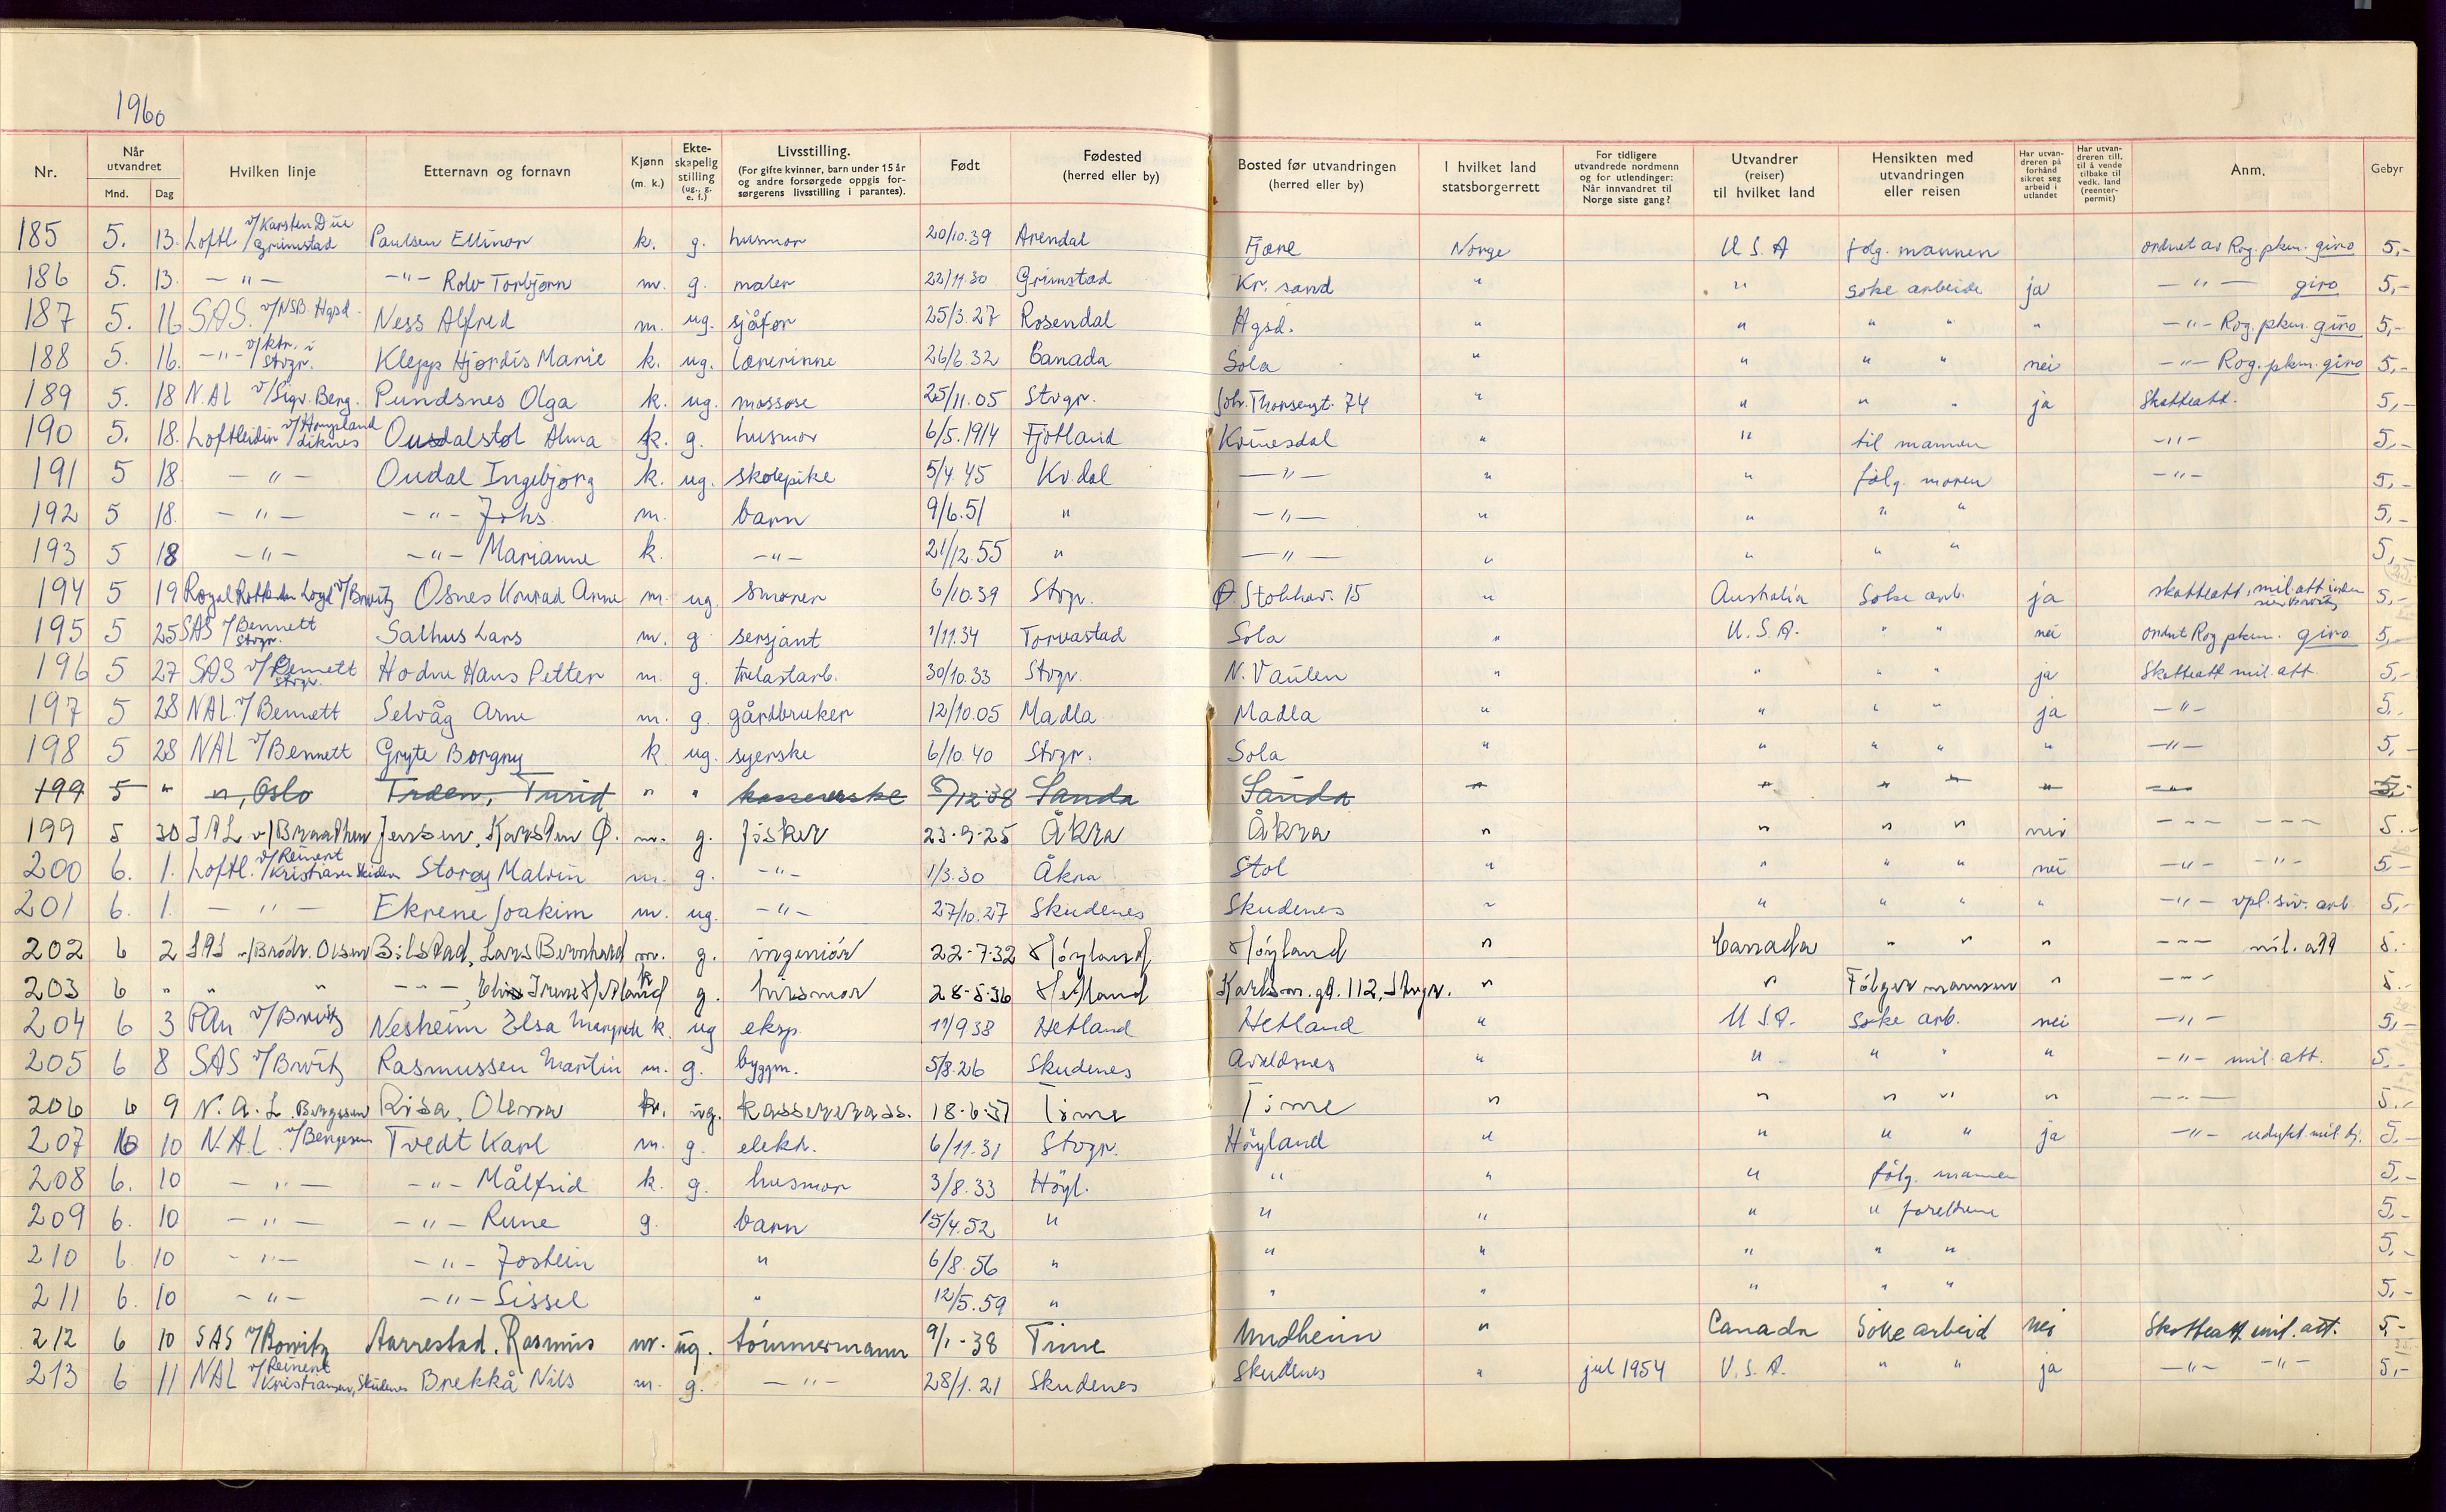 1960
Nr. Når utvandret Mnd. Dag Hvilken linje Etternavn og fornavn Kjønn (m. k.) Ekteskapelig stilling (ug., g. e. f.) Livsstilling. (For gifte kvinner, barn under 15 år og andre forsørgede oppgis forsørgerens livsstilling i parantes). Født Fødested (herred eller by) Bosted før utvandringen (herred eller by) I hvilket land statsborgerrett For tidligere utvandrede nordmenn og for utlendinger: Når innvandret til Norge siste gang? Utvandrer (reiser) til hvilket land Hensikten med utvandringen eller reisen Har utvandreren på forhånd sikret seg arbeid i utlandet Har utvandreren till. til å vende tilbake til vedk. land (reenterpermit) Anm. Gebyr
185 5. 13. Loftl. v/Karsten Due Grimstad Paulsen Ellinor k. g. husmor 20/10.39 Arendal Fjære Norge U S A følg. mannen ordnet av Rog. pkm. giro 5,-
186 5. 13. -"- -"- Rolv Torbjørn m. g. maler 22/11.30 Grimstad Kr. sand " " søke arbeide ja -"- giro 5,-
187 5. 16 SAS. v/NSB. Hgsd. Ness Alfred m. ug. sjåfør 25/3.27 Rosendal Hgsd. " " " " " -"- Rog. pkm. giro 5,-
188 5. 16. -"- v/ktr. i Stvgr. Klepp Hjørdis Marie k. ug. lærerinne 26/6.32 Canada Sola " " " " nei -"- Rog. pkm. giro 5,-
189 5. 18 N.A.L v/Sigv. Berg. Pundsnes Olga k. ug. massøse 25/11.05 Stvgr. Joh. Thorsengt. 74 " " " " ja Skatteatt. 5,-
190 5. 18. Loftleidir Ousdalstøl Alma k. g. husmor 6/5.1914 Fjotland Kvinesdal " " til mannen -"- 5,-
191 5 18 -"- Oudal Ingebjørg k. ug. skolepike 5/4.45 Kv.dal -"- " " følg. moren -"- 5,-
192 5 18. -"- -"- Johs m. barn 9/6.51 " -"- " " " " 5,-
193 5 18 -"- -"- Marianne k. -"- 21/12.55 " -"- " " " " 5,-
194 5 19 Royal Rotterdam Loyd v/Bowitz Osnes Konrad Arne m. ug. smører 6/10.39 Stvgr. Ø. Stokkav. 15 " Australia Søke arb. ja skatteatt, mil. att 5,-
195 5 25 SAS v/Bennett Stvgr. Salhus Lars m. g sersjant 1/11.34 Torvastad Sola " U.S.A. " " nei ordnet Rog pkm. giro 5,-
196 5 27 SAS v/Bennett Stvgr. Hodne Hans Petter m. g. trelastarb. 30/10.33 Stvgr. N. Vaulen " " " " ja Skatteatt mil. att. 5,-
197 5 28 NAL. v/Bennett Selvåg Arne m. g. gårdbruker 12/10.05 Madla Madla " " " " ja -"- 5,-
198 5 28 NAL v/Bennett Gryte Borgny k ug. syerske 6/10.40 Stvgr. Sola " " " " " -"- 5,-
199 5 " ", Oslo Turid " " 8/12.38 Sanda Sanda " " " " -"- 5,-
199 5 30 v/Braathen Jensen, Karsten Ø. m. g. fisker 23-9-25 Åkra Åkra " " " " nei --- --- 5.-
200 6. 1. Loftl. v/Reinert Kristiansen Skuden Storøy Malvin m. g. -"- 1/3.30 Åkra Stol " " " " nei -"- -"- 5,-
201 6. 1. -"- Ekrene Joakim m. ug. -"- 27/10.27 Skudenes Skudenes " " " " " -"- vpl. siv. arb. 5,-
202 6 2 v/Brødr. Olsen Bilstad, Lars Bernhard m. g. ingeniør 22-7-32 Høyland Høyland " Canada " " " --- mil. att 5.-
203 6 " " " ---, Irene Hetland k g. husmor 28-5-36 Hetland Karlsm.gt. 112, Stvgr. " " Følger mannen " --- 5.-
204 6 3 PAn v/Bowitz Nesheim Elsa Margrete k. ug eksp. 11/9 38 Hetland Hetland " U S A. Søke arb. nei -"- 5,-
205 6 8 SAS v/Bowitz Rasmussen Martin m. g. byggm. 5/8.26 Skudenes Avaldsnes " " " " " -"- mil. att. 5,-
206 6 9 N. A. L. Bergesen Risa, Olena k. ug. kassererass. 18-6-37 Time Time " " " " " --- 5.-
207 6 10 N.A.L. v/Bergesen Tvedt Karl m. g. elektr. 6/11.31 Stvgr. Høyland " " " " ja -"- utdykt. mil. tj. 5,-
208 6. 10 -"- -"- Målfrid k. g. husmor 3/8.33 Høyl. " " " følg. mannen 5,-
209 6. 10 -"- -"- Rune g. barn 15/4.52 " " " " " foreldrene 5,-
210 6 10 -"- -"- Jostein " 6/8.56 " " " " " " 5,-
211 6. 10 -"- -"- Sissel " 12/5.59 " " " " " " 5,-
212 6 10 SAS v/Bowitz Aarrestad, Rasmus m. ug. tømmermann 9/1-38 Time Undheim " Canada Søke arbeid nei Skatteatt. mil. att. 5,-
213 6 11 NAL v/Reinert Kristiansen, Skudenes Brekkå Nils m. g. -"- 28/1.21 Skudenes Skudenes " jul 1954 U.S.A. " " ja -"- -"- 5,-